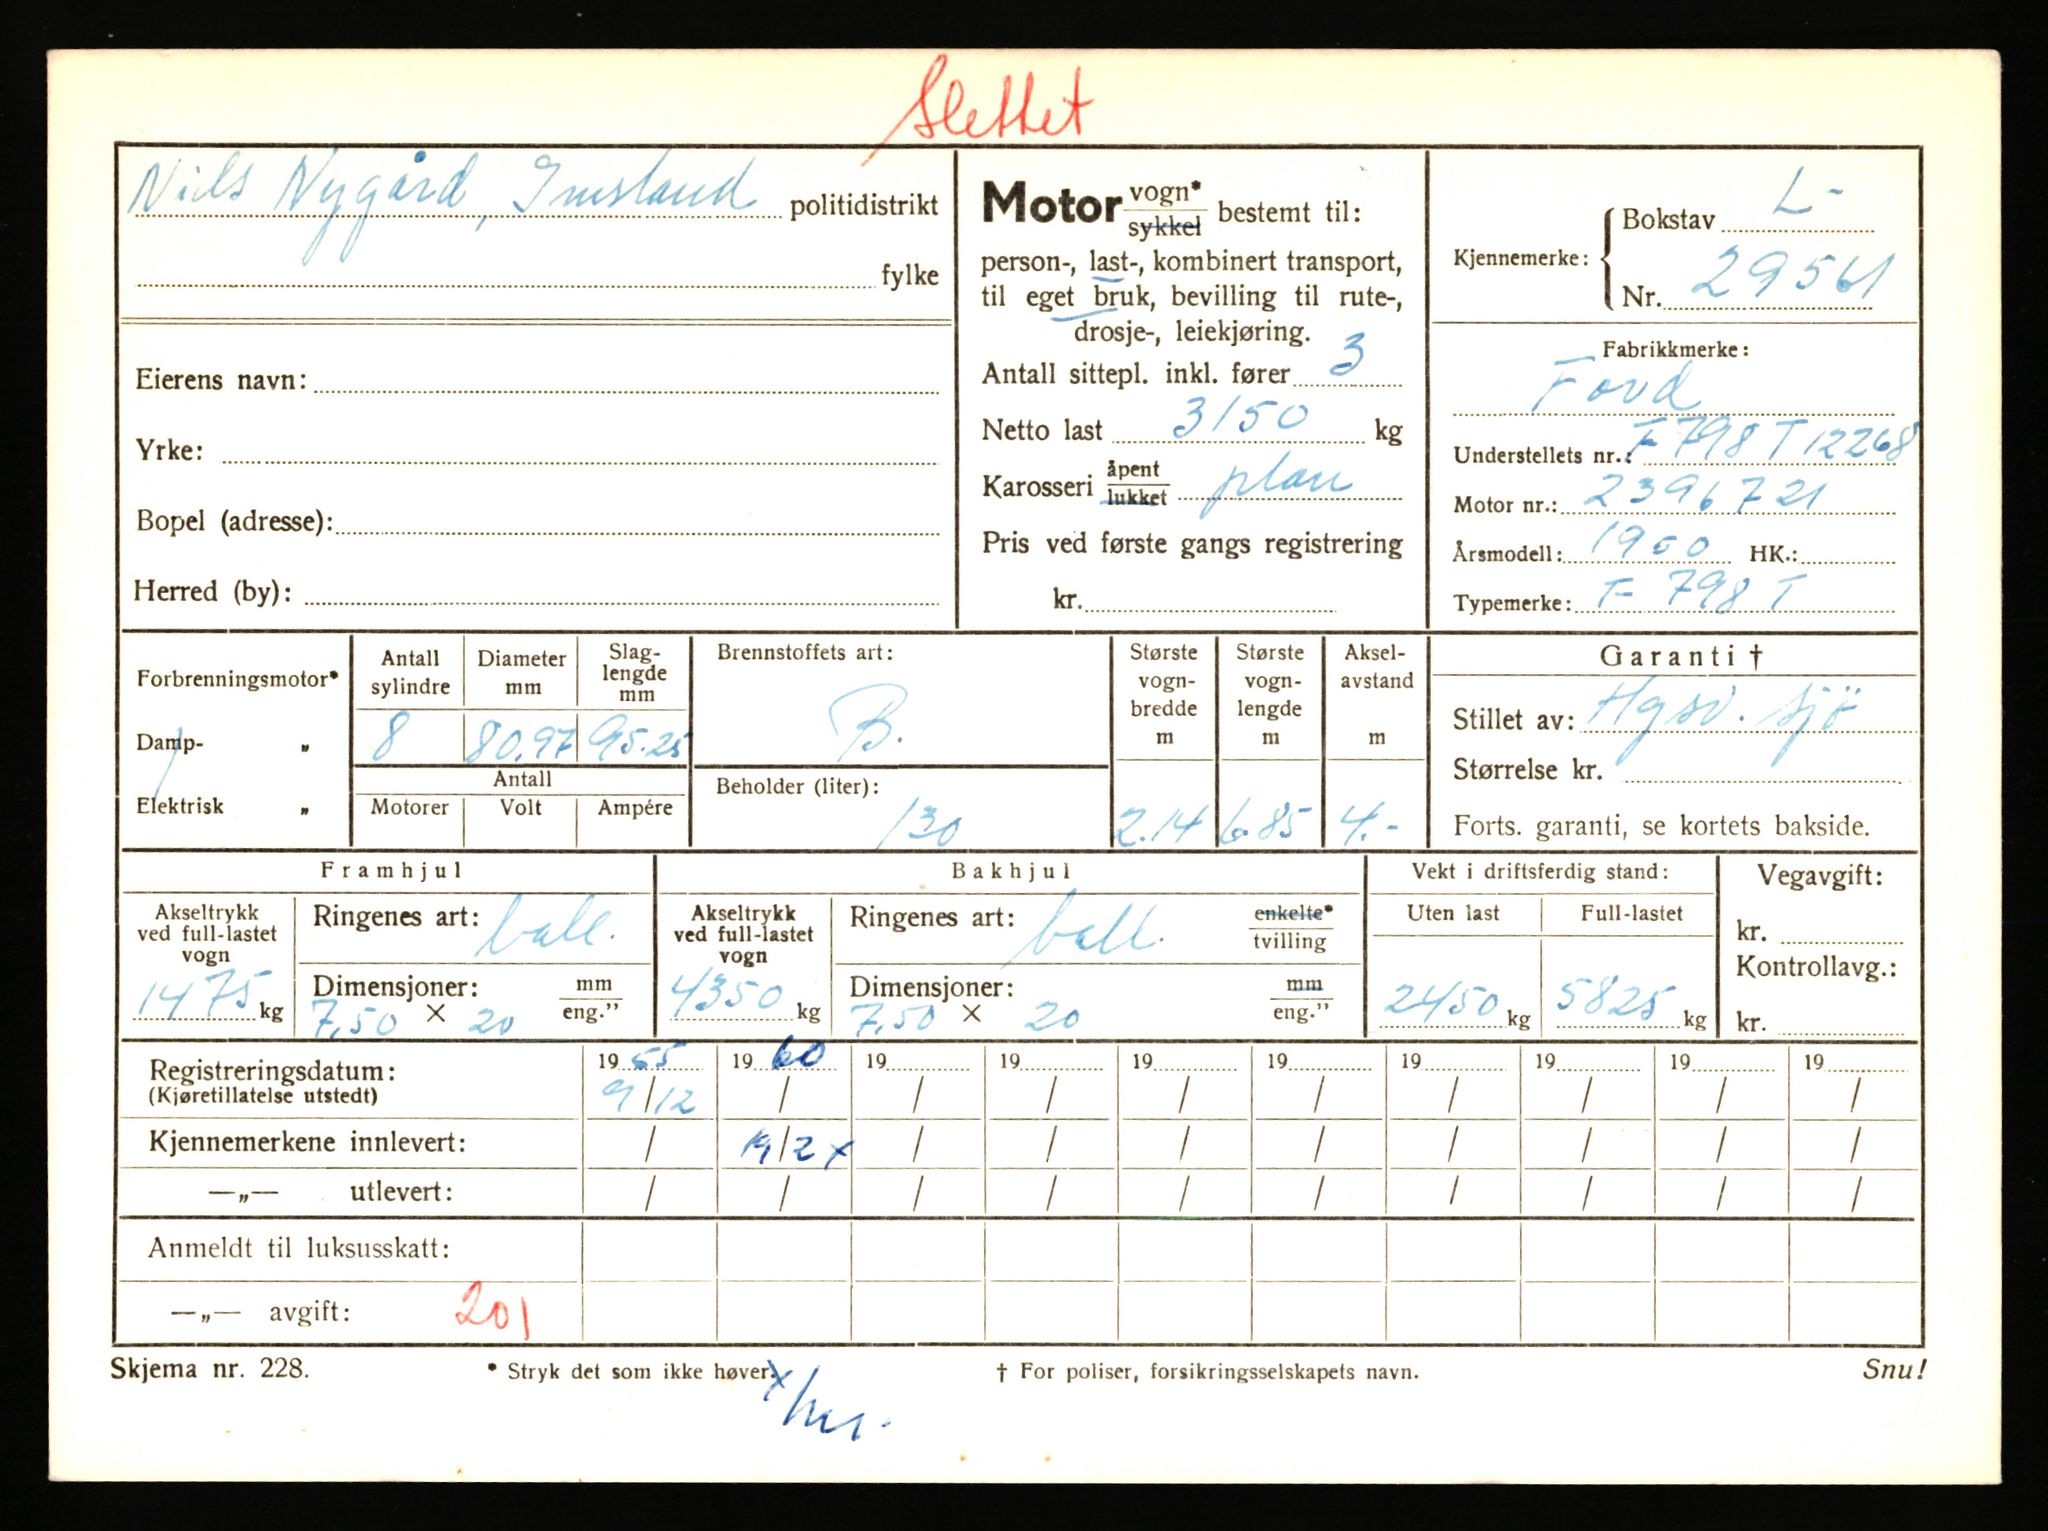 Slettet
Niels Nygård, Imsland politidistrikt
fylke
Eierens navn:
Yrke:
Bopel (adresse):
Herred (by):
Motor vogn* sykkel bestemt til:
person-, last-, kombinert transport,
til eget bruk, bevilling til rute-,
drosje-, leiekjøring.
Antall sittepl. inkl. fører 3
Netto last 3150 kg
Karosseri åpent lukket plan
Pris ved første gangs registrering
kr.
Kjennemerke: Bokstav L-
Nr. 29561
Fabrikkmerke:
Ford
Understellets nr.: F 798 T 12268
Motor nr.: 2396721
Årsmodell: 1950 HK.:
Typemerke: F 798 T
Forbrenningsmotor*
Damp- „
Elektrisk „
Antall sylindre Diameter mm Slaglengde mm
8 80.97 95.25
Antall
Motorer Volt Ampére
Brennstoffets art:
B.
Beholder (liter):
130
Største vogn-bredde m Største vogn-lengde m Aksel-avstand m
2.14 6.85 4.-
Garanti †
Stillet av: Hgsd. Sjö
Størrelse kr.
Forts. garanti, se kortets bakside.
Framhjul
Akseltrykk ved full-lastet vogn
1475 kg
Ringenes art: ball.
Dimensjoner: mm eng.”
7,50 × 20
Bakhjul
Akseltrykk ved full-lastet vogn
4350 kg
Ringenes art: ball. enkelte* tvilling
Dimensjoner: mm eng.”
7,50 × 20
Vekt i driftsferdig stand:
Uten last Full-lastet
2450 kg 5825 kg
Vegavgift:
kr.
Kontrollavg.:
kr.
Registreringsdatum: 1955 1960 19 19 19 19 19 19 19 19
(Kjøretillatelse utstedt) 9/12 / / / / / / / / /
Kjennemerkene innlevert: / 19/2 x / / / / / / / /
—„— utlevert: / / / / / / / / / /
Anmeldt til luksusskatt:
—„— avgift: 201
Skjema nr. 228. * Stryk det som ikke høver. † For poliser, forsikringsselskapets navn. Snu!
x/